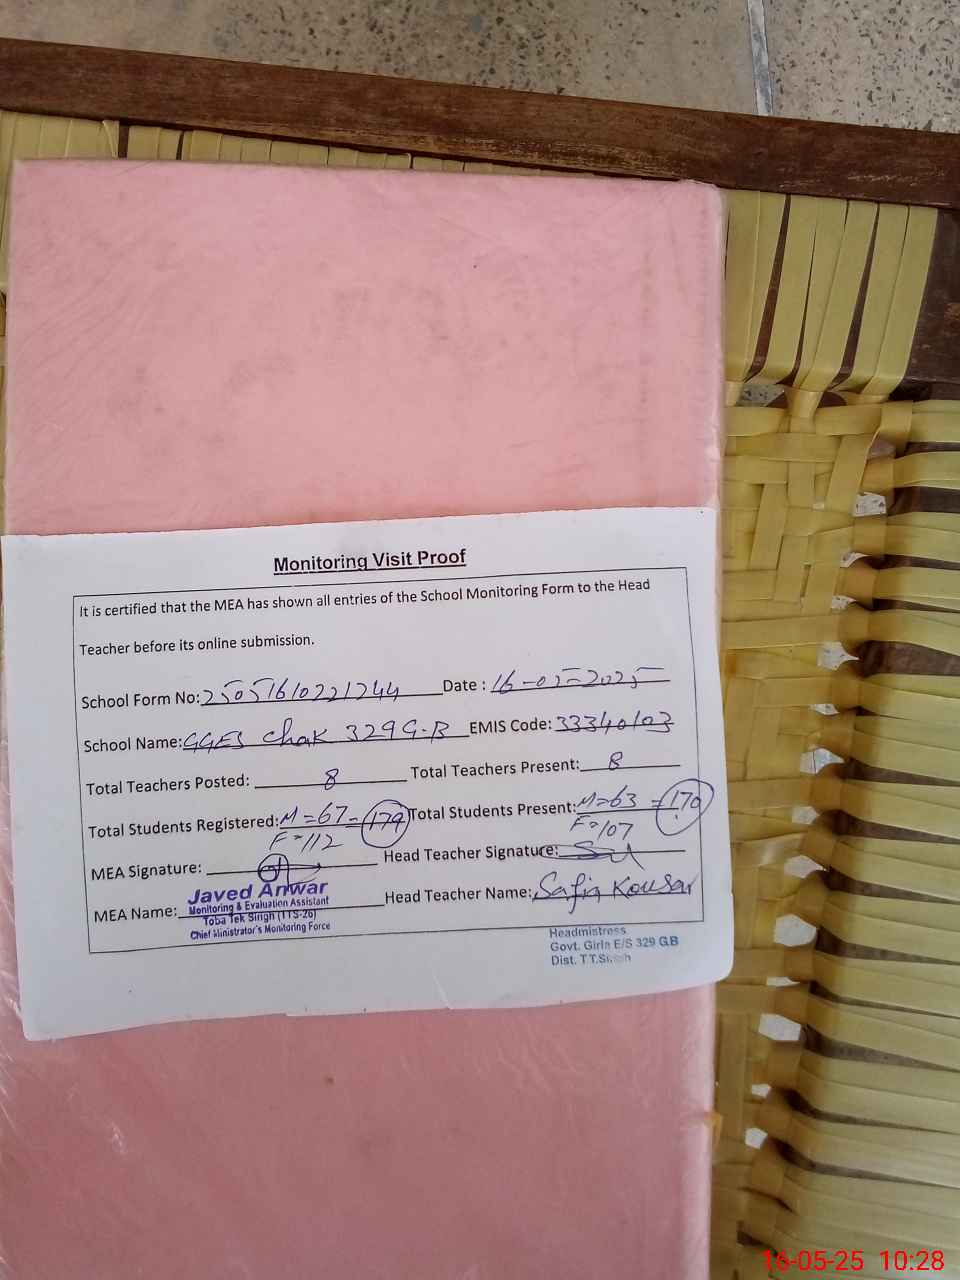 Monitoring Visit Proof
It is certified that the MEA has shown all entries of the School Monitoring Form to the Head
Teacher before its online submission.
School Form No: 25051610221244 Date : 16-05-2025
School Name: GGES Chak 329 G.B EMIS Code: 33340103
Total Teachers Posted: 8 Total Teachers Present: 8
Total Students Registered: M=67 = 179 Total Students Present: M=63 = 170
F=112 F=107
MEA Signature: Head Teacher Signature:
Javed Anwar
Monitoring & Evaluation Assistant
MEA Name: Head Teacher Name: Safia Kousar
Toba Tek Singh (TTS-26)
Chief Ministrator's Monitoring Force
Headmistress
Govt. Girls E/S 329 GB
Dist. T.T.Singh
16-05-25 10:28